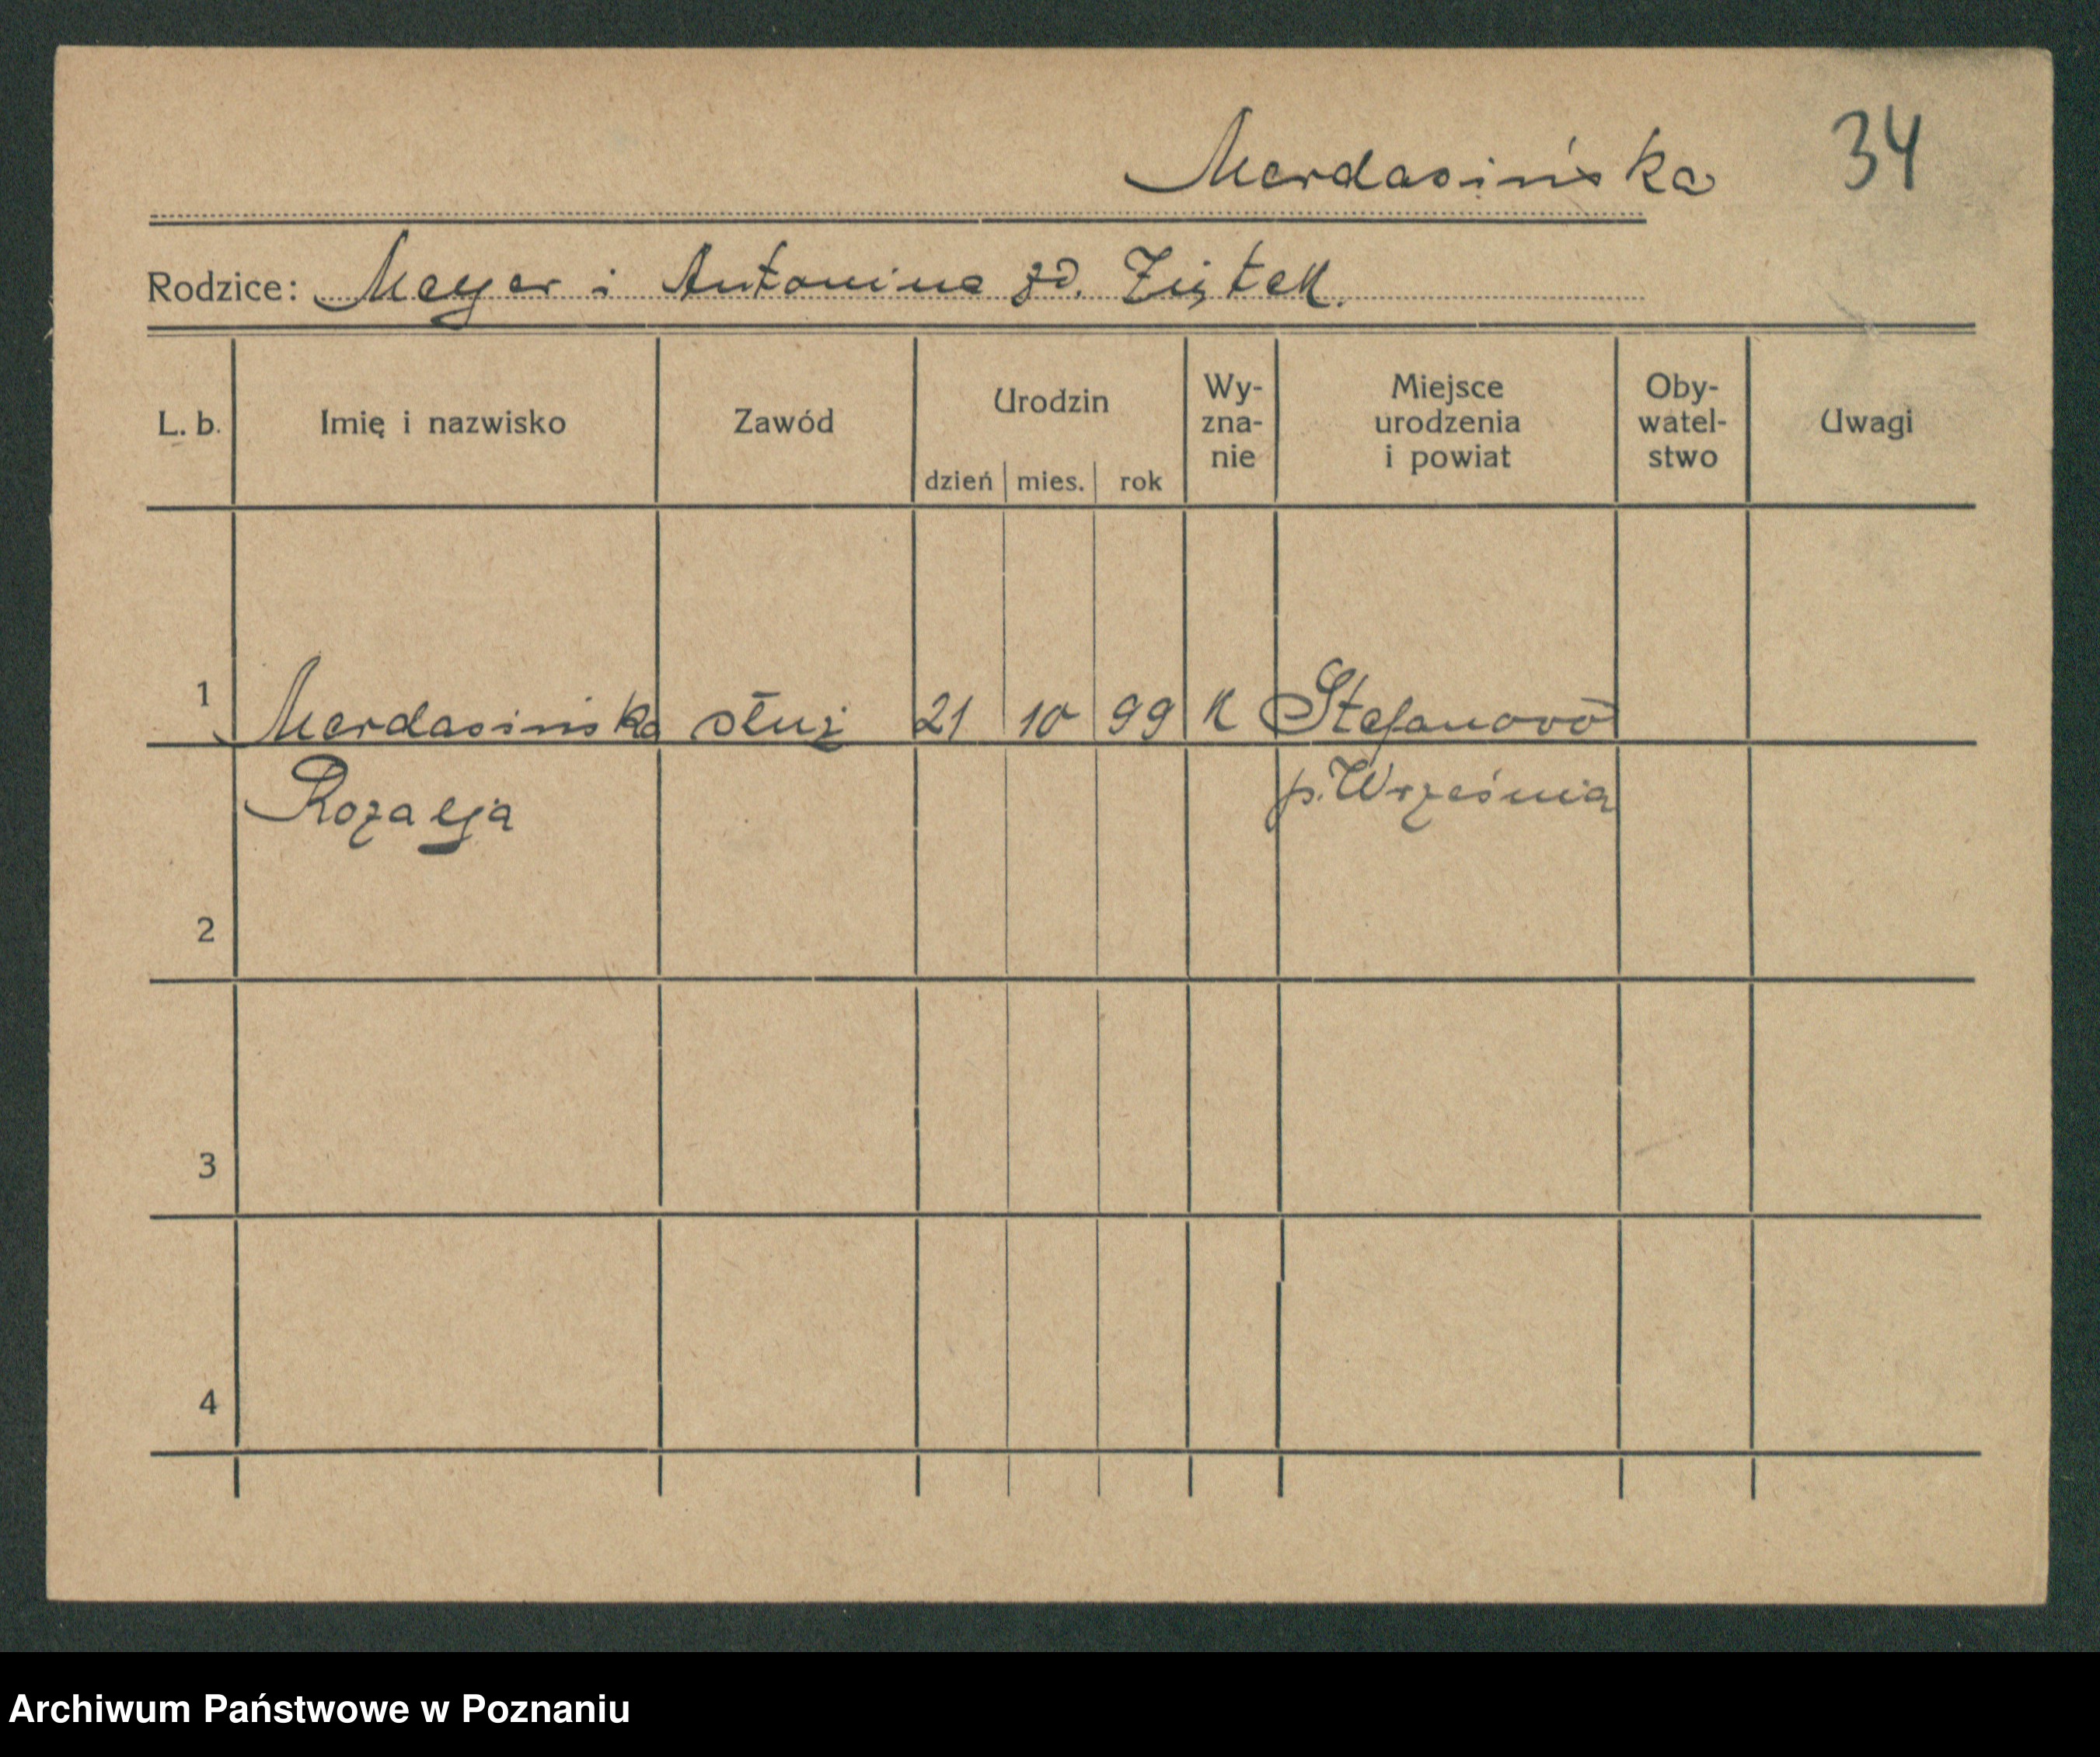 Merdasińska 34
Rodzice: Meyer i Antonina zd. Ziętek.
L. b. Imię i nazwisko Zawód Urodzin dzień mies. rok Wy-zna-nie Miejsce urodzenia i powiat Oby-watel-stwo Uwagi
1 Merdasińska służ 21 10 99 K Stefanowo
Rozalja p. Września
2
3
4
Archiwum Państwowe w Poznaniu